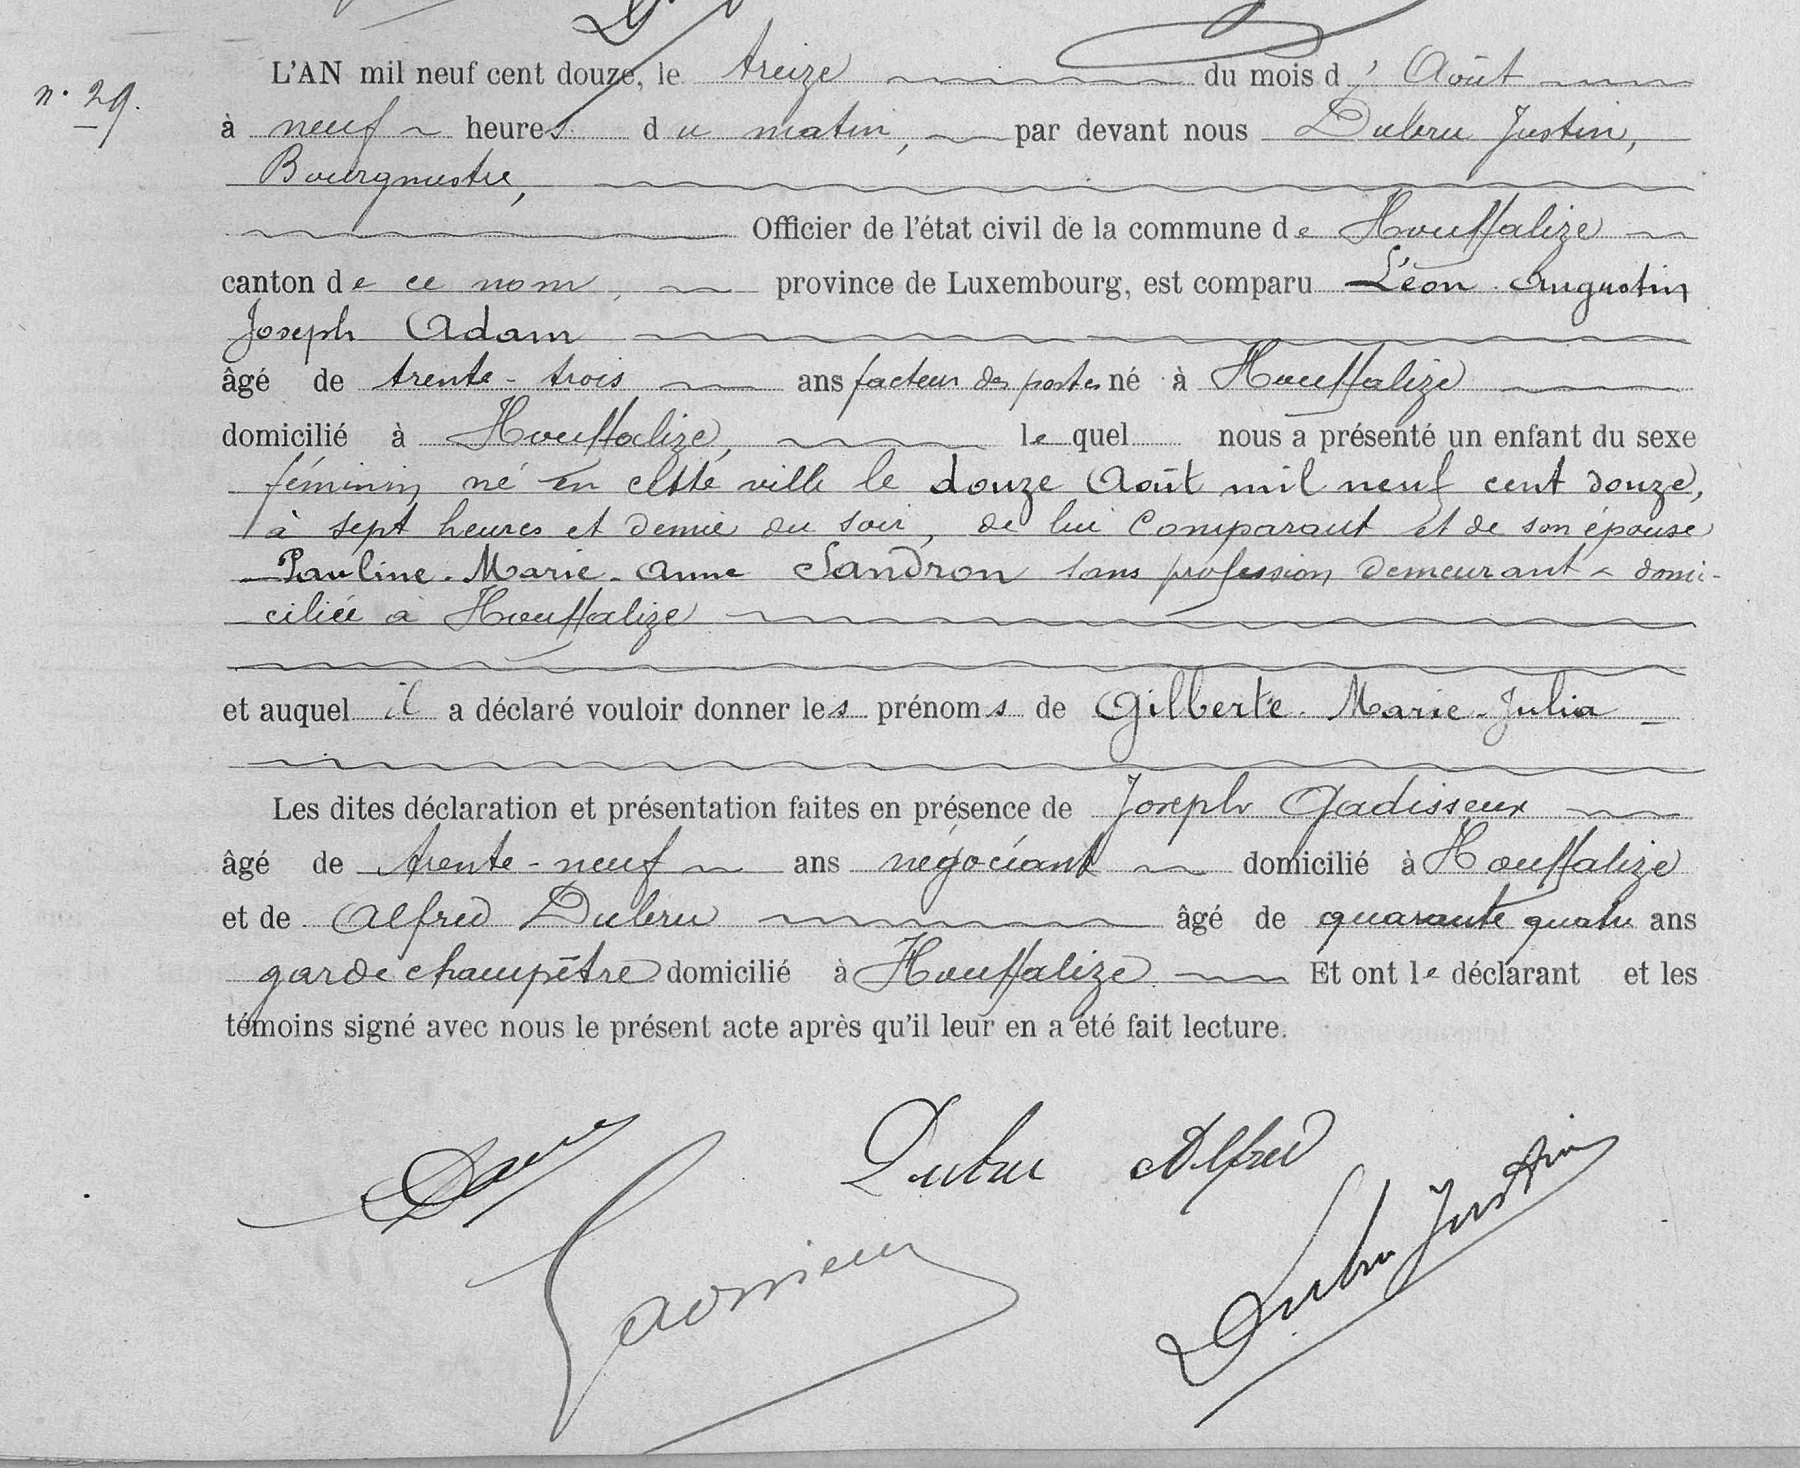 n. 29.
L'AN mil neuf cent douze, le treize du mois d' Août
à neuf heures du matin, par devant nous Dubru Justin,
Bourgmestre,
Officier de l'état civil de la commune de Houffalize
canton de ce nom, province de Luxembourg, est comparu Léon Augustin
Joseph Adam
âgé de trente-trois ans facteur des postes né à Houffalize
domicilié à Houffalize, lequel nous a présenté un enfant du sexe
féminin né en cette ville le douze Août mil neuf cent douze,
à sept heures et demie du soir, de lui Comparant et de son épouse
Pauline-Marie-Anne Sandron sans profession demeurant & domi-
ciliée à Houffalize
et auquel il a déclaré vouloir donner les prénoms de Gilberte-Marie-Julia
Les dites déclaration et présentation faites en présence de Joseph Gadisseux
âgé de trente-neuf ans négociant domicilié à Houffalize
et de Alfred Dubru âgé de quarante quatre ans
garde champêtre domicilié à Houffalize Et ont le déclarant et les
témoins signé avec nous le présent acte après qu'il leur en a été fait lecture.
Dubru Alfred
Dubru Justin